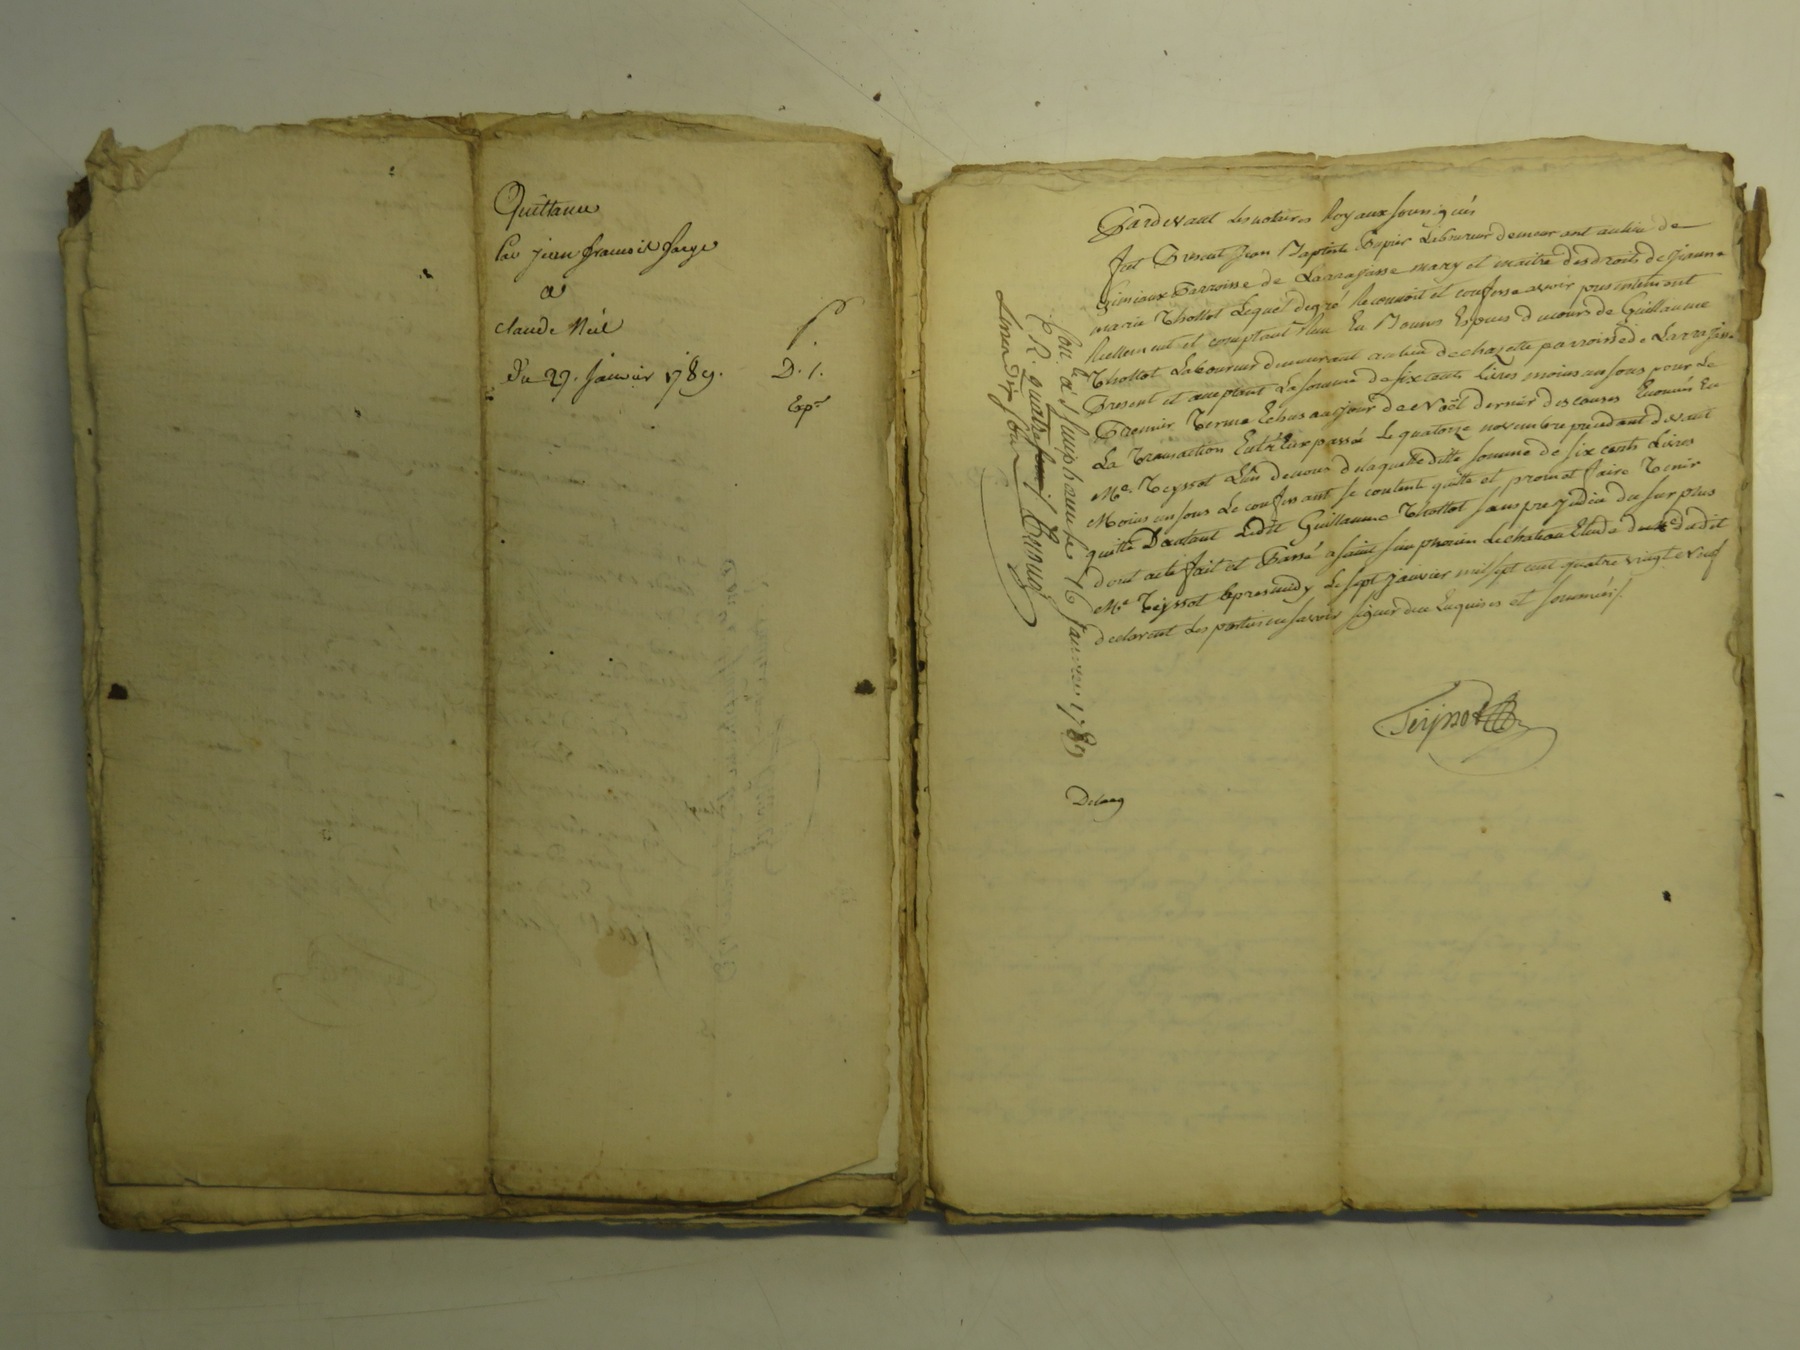 Quittance
Par jean francois farge
a
claude Néel
Du 29. janvier 1789.
D. 1.
Exp.
Pardevant Les notaires Royaux soussignés
fut Present Jean Baptiste Bupier Laboureur demeurant au lieu de
Parroisse de Larrajasse mary et maitre des droits de jeanne
marie Thollot Lequel de gré Reconnoit et confesse avoir presentement
Reellement et comptant Reçu En Bonnes Especes du cours de Guillaume
Thollot Laboureur demeurant au lieu de chazette parroisse de Larrajasse
Present et acceptant La somme de six cents Livres moins un sous pour Le
Premier Terme Echus au jour de Noël dernier des causes Enoncées En
La Transaction Entr'Eux passée Le quatorze novembre precedent devant
Me. Teyssot L'un de nous de laquelle ditte somme de six cents Livres
Moins un sous Le confessant se contente quitte et promet faire Tenir
quitte D'autant Ledit Guillaume Thollot sans prejudice du surplus
dont acte fait et Passé a saint simphorien Le château Etude dudit
Me. Teyssot apres midy Le sept janvier mil sept cent quatre vingt neuf
declarent Les parties ne savoir signer de ce Enquises et sommées.
Teyssot
Con. lé a St simphorien le 16 janvier 1789
R. quatre
Delaag